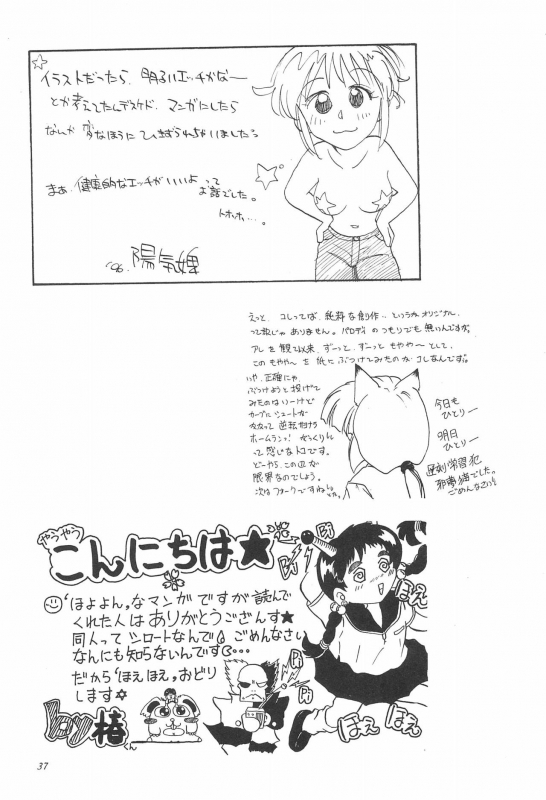 イラストだったら、明るいエッチかなー
とか考えてたんデスケド、マンガにしたら
なんか 変なほうに ひきずられちゃいましたっ
まあ、健康的なエッチがいいよ って
お話でした。
トホホ…。
'96. 陽気婢
えっと、コレってば、純粋な創作‥というかオリジナル
って訳じゃ ありません。パロディ のつもりでも 無いんですが。
アレ を 観て以来、ずーっと、ずーっと もやや〜 として、
この もやや〜 を 紙に ぶつけてみたのが コレなんです。
いや、正確にゃ
ぶつけようと 投げて
みたのは いーけど
カーブに シュートが
かかって 逆転サヨナラ
ホームランっ! がっくりん
って 感じな トコです。
どーやら、この辺が
限界なのでしょう。
次は フォークですね
今日も
ひとりー
明日
ひとりー
遅刻学習犯
邪夢猫でした。
ごめんなさい!
やうやう
こんにちは★
'ほよよん,なマンガですが読んで
くれた人は ありがとうござんす★
同人って シロートなんで ごめんなさい
なんにも知らないんです…
だから'ほえほえ,おどり
します☆
椿くん
ほえ
ほえ
ほえ
ほえ
37